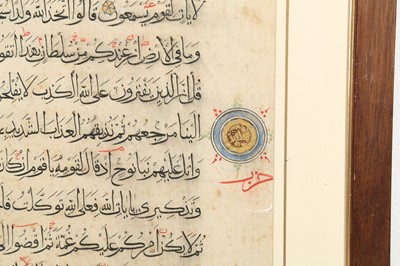 لايات لقوم يسمعون قالوا اتخذ الله ولدا
وما في الارض ان عندكم من سلطان بهذا اتقو
قل ان الذين يفترون على الله الكذب لا يفلحو
الينا مرجعهم ثم نذيقهم العذاب الشديد
واتل عليهم نبا نوح اذ قال لقومه يا قوم ان كان
وتذكيري بايات الله فعلى الله توكلت
ثم لا يكن امركم عليكم غمة ثم اقضوا
حزب